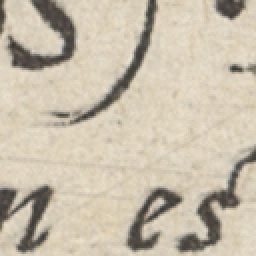 s)
n es